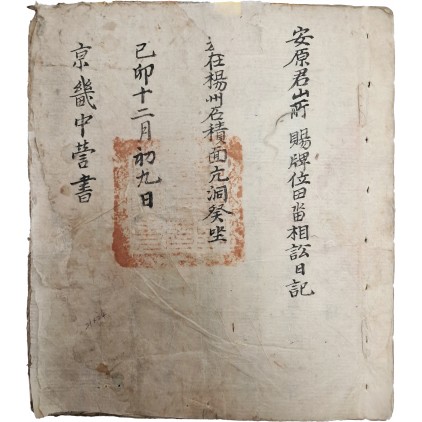 安原君山所賜牌位田畓相訟日記
在楊州石積面亢洞癸坐
己卯十二月初九日
京畿中營書